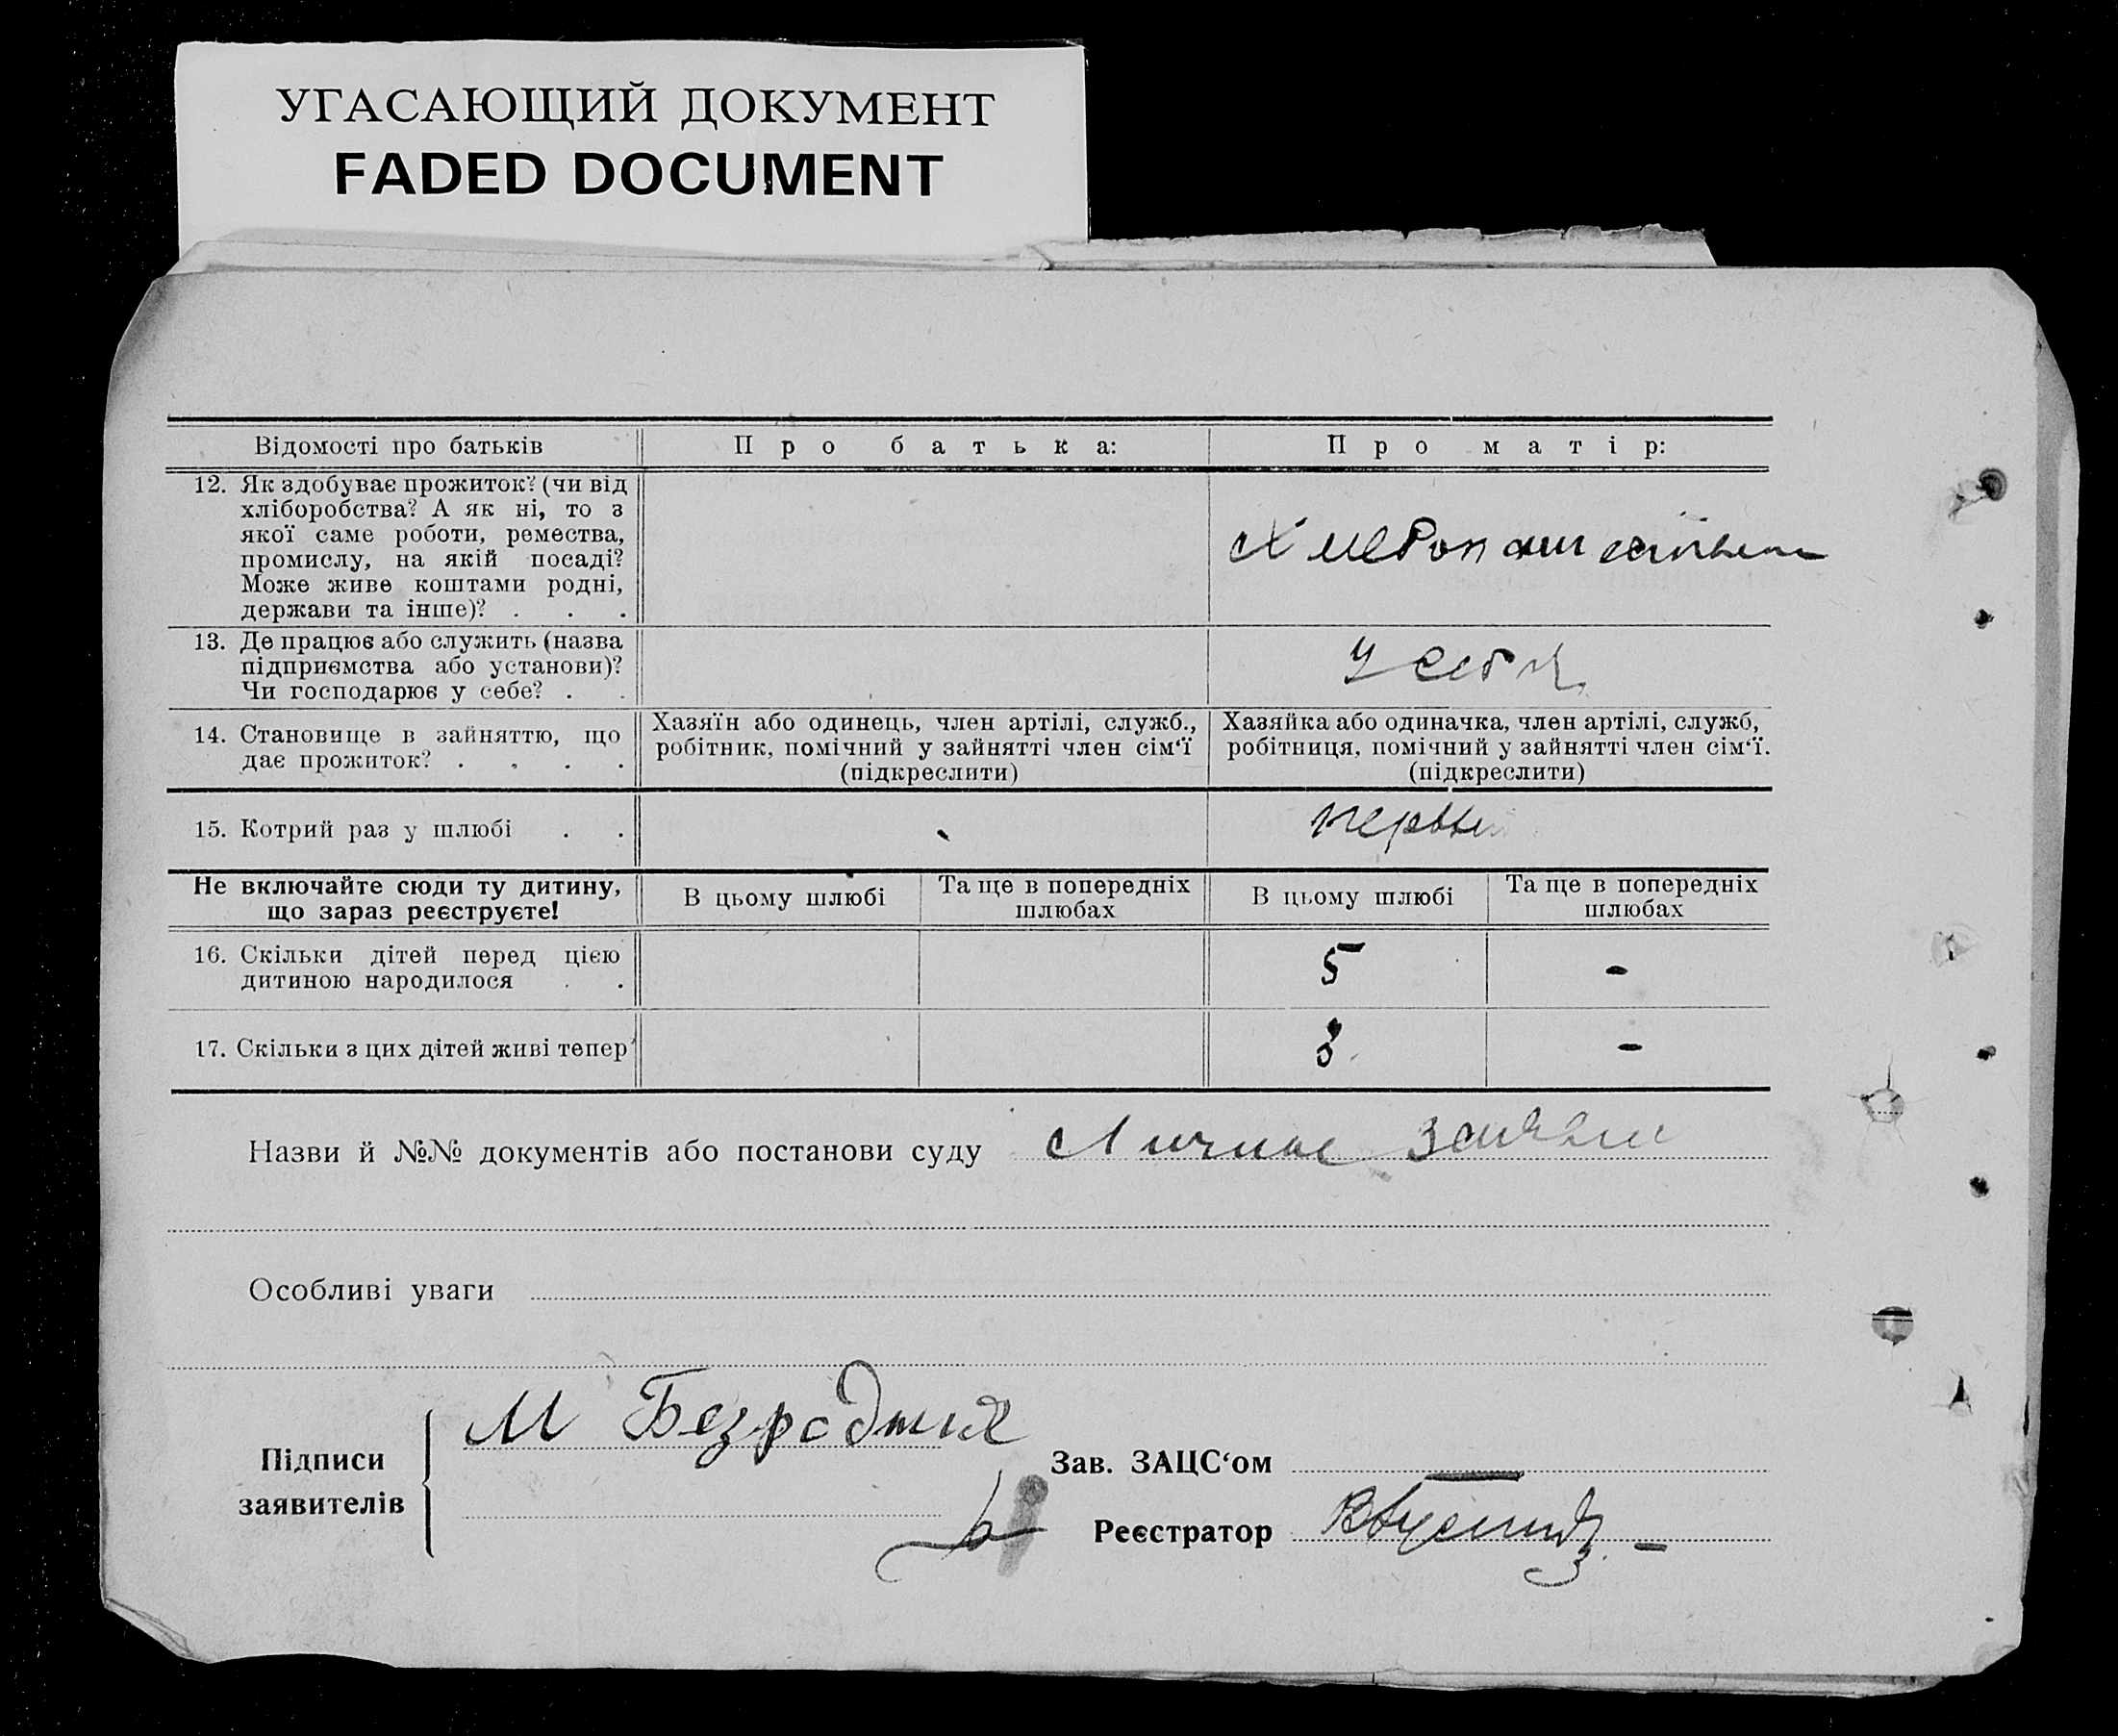 УГАСАЮЩИЙ ДОКУМЕНТ
FADED DOCUMENT
Відомості про батьків
Про батька:
Про матір:
12. Як здобуває прожиток? (чи від
хліборобства? А як ні, то з
якої саме роботи, ремества,
промислу, на якій посаді?
Може живе коштами родні,
держави та інше)? . . .
13. Де працює або служить (назва
підприємства або установи)?
Чи господарює у себе? . .
у себя
14. Становище в зайняттю, що
дає прожиток? . . . .
Хазяїн або одинець, член артілі, служб.,
робітник, помічний у зайнятті член сім‘ї
(підкреслити)
Хазяйка або одиначка, член артілі, служб,
робітниця, помічний у зайнятті член сім‘ї.
(підкреслити)
15. Котрий раз у шлюбі . .
первы
Не включайте сюди ту дитину,
що зараз реєструєте!
В цьому шлюбі
Та ще в попередніх
шлюбах
В цьому шлюбі
Та ще в попередніх
шлюбах
16. Скільки дітей перед цією
дитиною народилося . .
5
-
17. Скільки з цих дітей живі тепер
3
-
Назви й №№ документів або постанови суду Личное заявле
Особливі уваги
Підписи
заявителів
М Безродних
Зав. ЗАЦС‘ом
Реєстратор